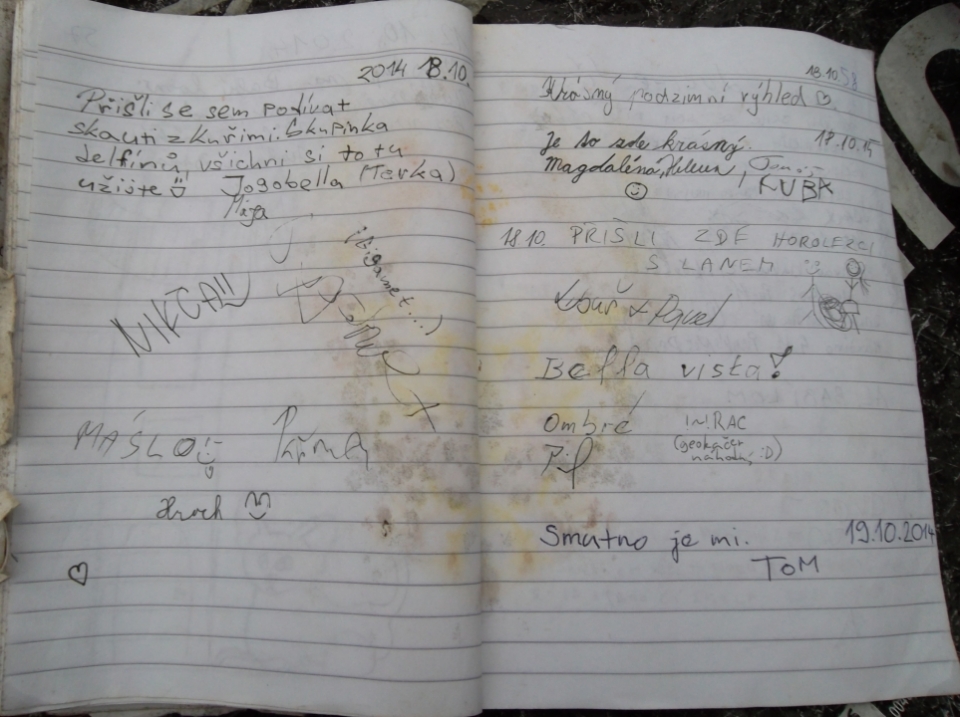 2014 18.10.
Přišli se sem podívat
skauti z Kuřimi. Skupinka
delfínů, všichni si to tu
užijte Jogobella (Terka)
Mája
NIKČA!!!
MÁSLO
Hroch
18.10 58
Krásný podzimní výhled
Je to zde krásný. 18.10.14
Magdaléna, Helena,
KUBA
18.10. PŘIŠLI ZDE HOROLEZCI
S LANEM
& Pavel
Bella vista!
Ombré I~!RAC
Pif (geokačer
náhodný :D)
Smutno je mi. 19.10.2014
TOM